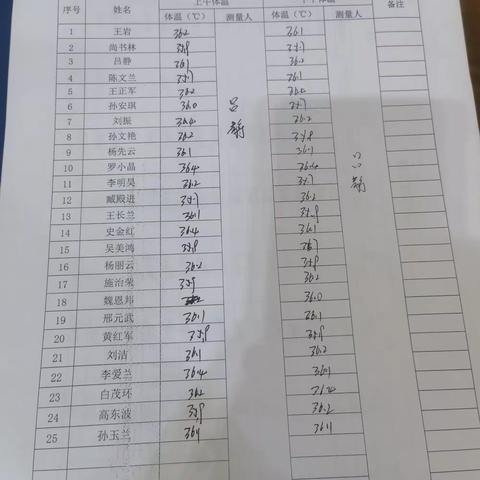 序号 姓名 上午体温 下午体温 备注
体温（℃） 测量人 体温（℃） 测量人
1 王岩 36.2 36.1
2 尚书林 35.9 35.7
3 吕静 36.1 36.2
4 陈文兰 35.7 36.1
5 王正军 36.2 36.0
6 孙安琪 36.0 35.7
7 刘振 36.4 36.2
8 孙文艳 36.2 35.8
9 杨先云 36.1 36.1
10 罗小晶 36.4 36.4
11 李明昊 36.2 35.7
12 臧殿进 35.7 36.2
13 王长兰 36.1 35.9
14 史金红 36.4 36.1
15 吴美鸿 35.9
16 杨丽云 36.2 35.9
17 施治荣 35.9 36.2
18 魏恩邦 36.0
19 邢元武 36.1 36.1
20 黄红军 35.9 35.9
21 刘洁 36.1 36.2
22 李爱兰 36.4 36.1
23 白茂环 36.2 36.4
24 高东波 35.9 36.2
25 孙玉兰 36.1 36.1
吕静
吕静